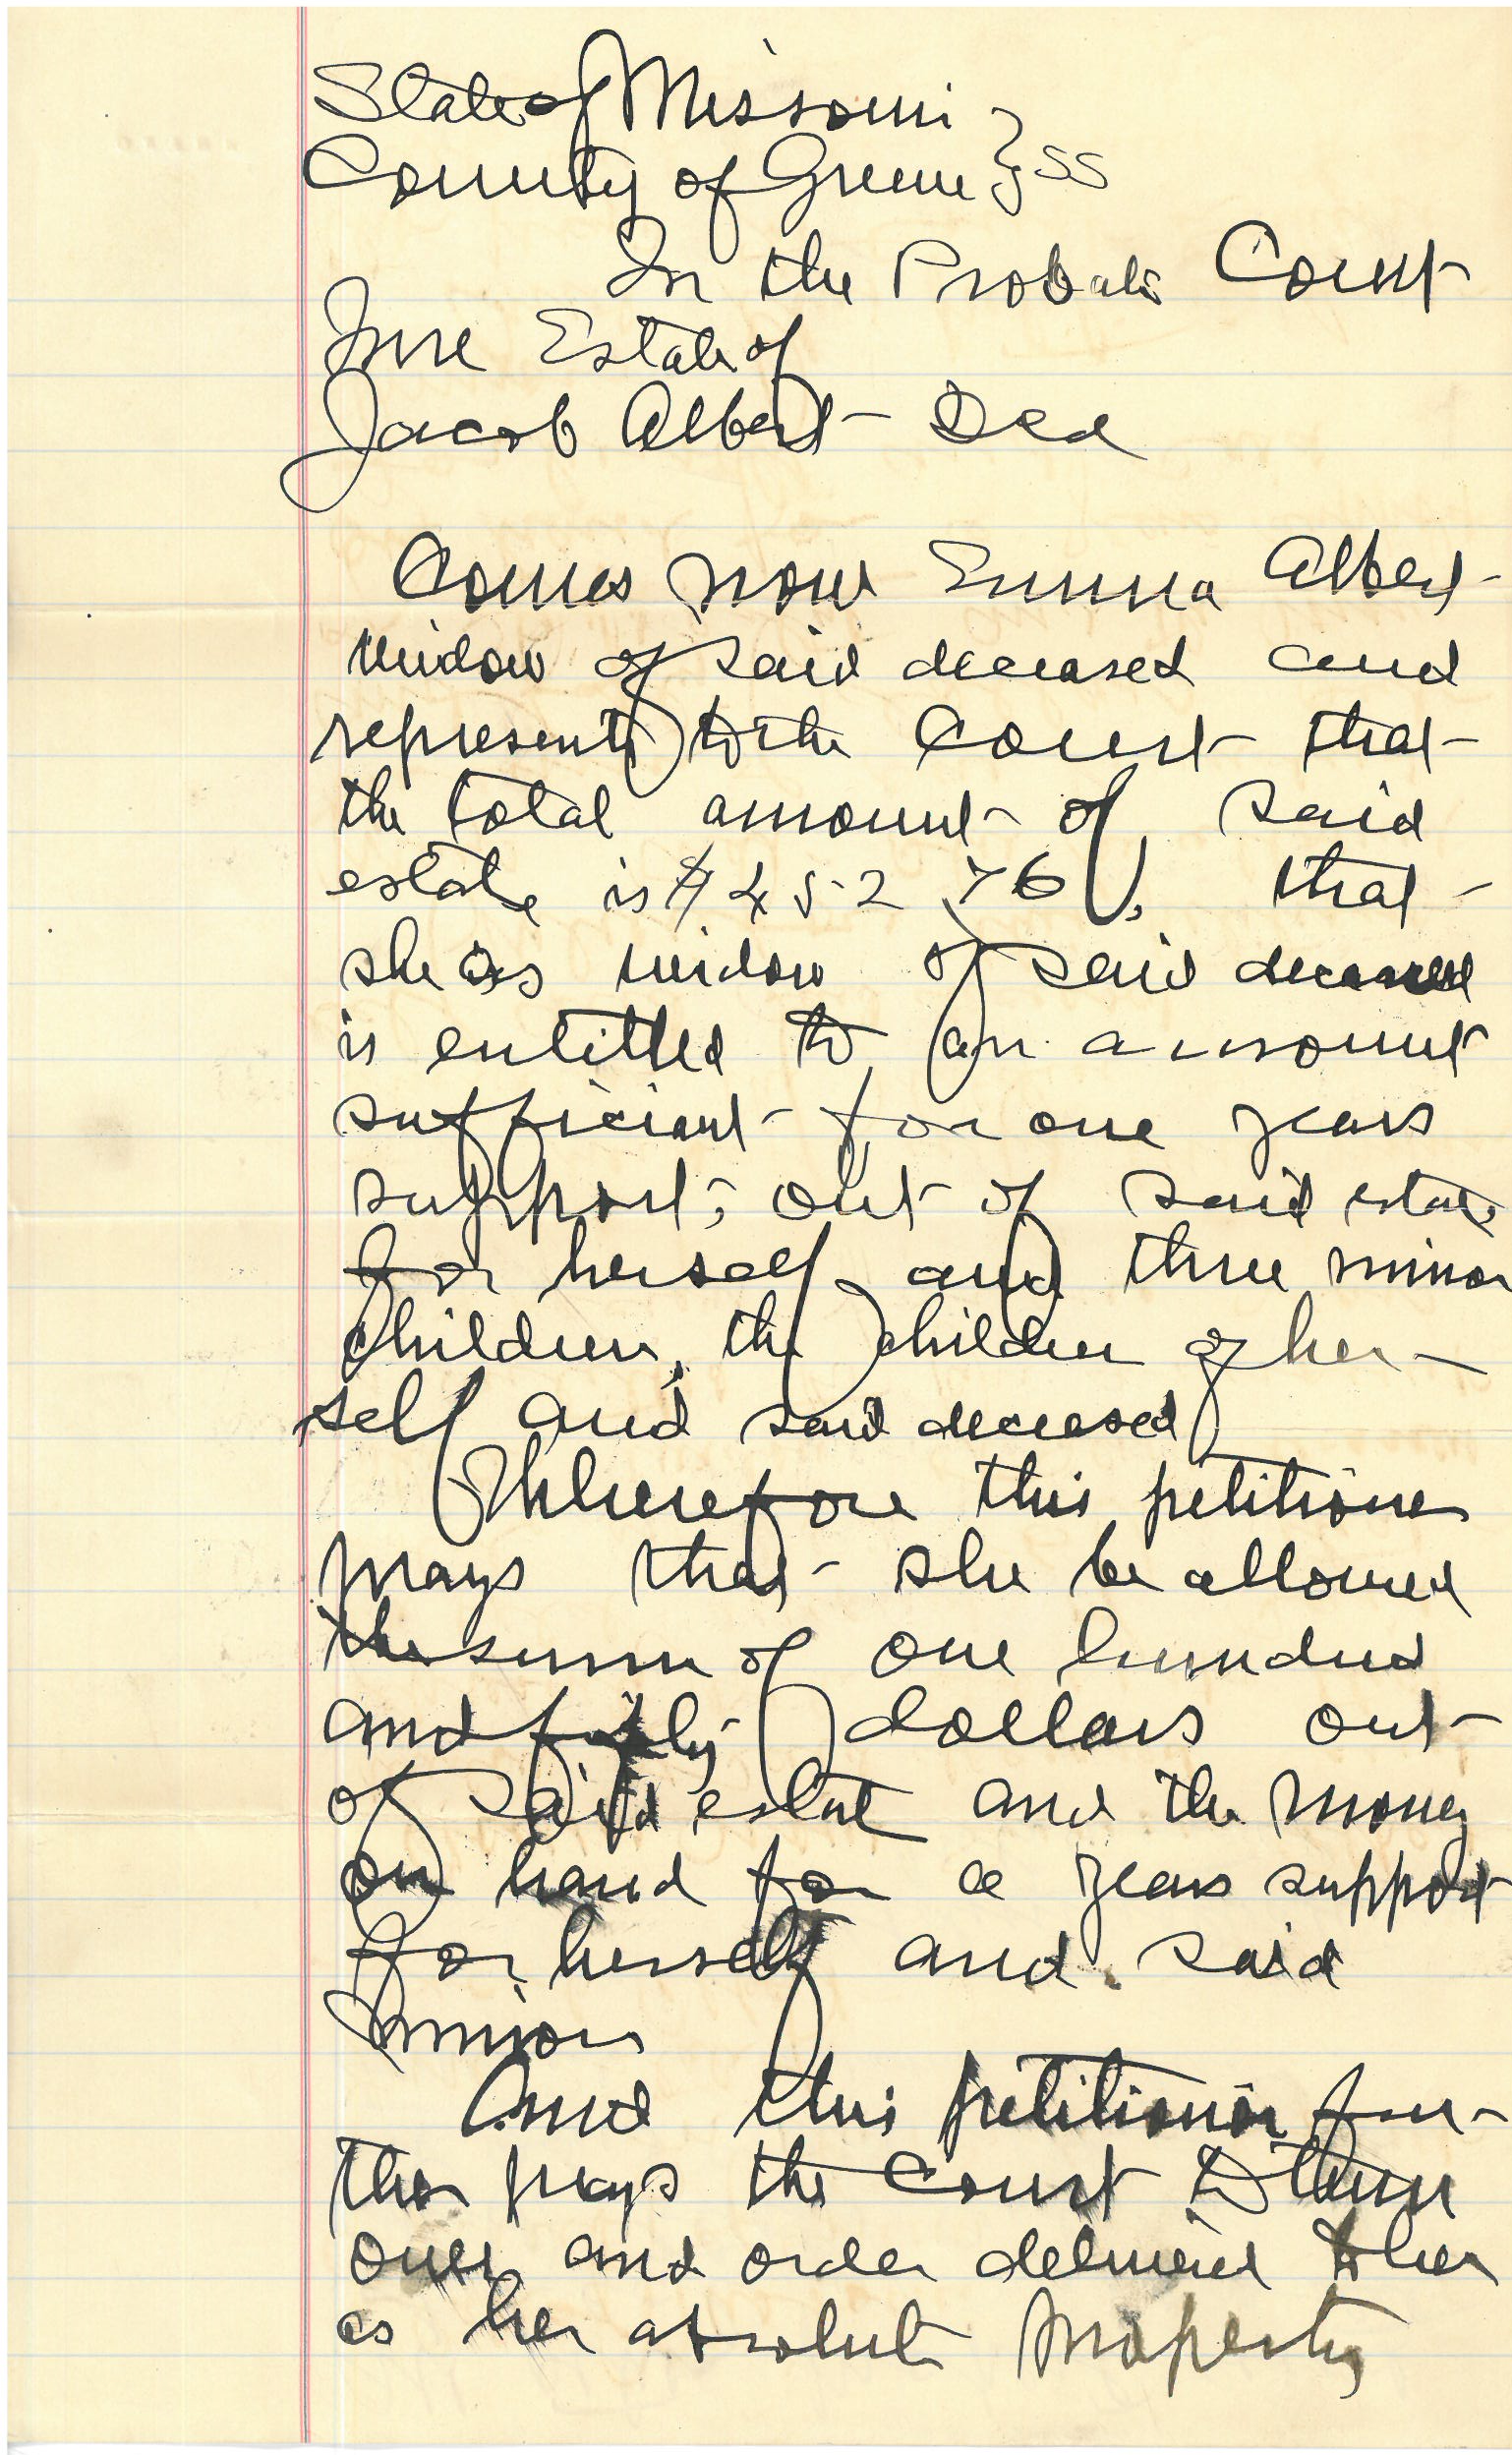 State of Missouri }
County of Greene } SS
In the Probate Court
In re Estate of
Jacob Albert Decd
Comes now Emma Albert
widow of said deceased and
represents to the Court that
the total amount of said
estate is $452.76, that
she as widow of said deceased
is entitled to an amount
sufficient for one years
support, out of said estate
for herself and three minor
children, the children of her-
self and said deceased
Wherefore this petitioner
prays that she be allowed
the sum of one hundred
and fifty dollars out
of said estate and the money
on hand for a years support
for herself and said
minors
And this petitioner fur-
ther prays the Court to turn
over and order delivered to her
as her absolute property